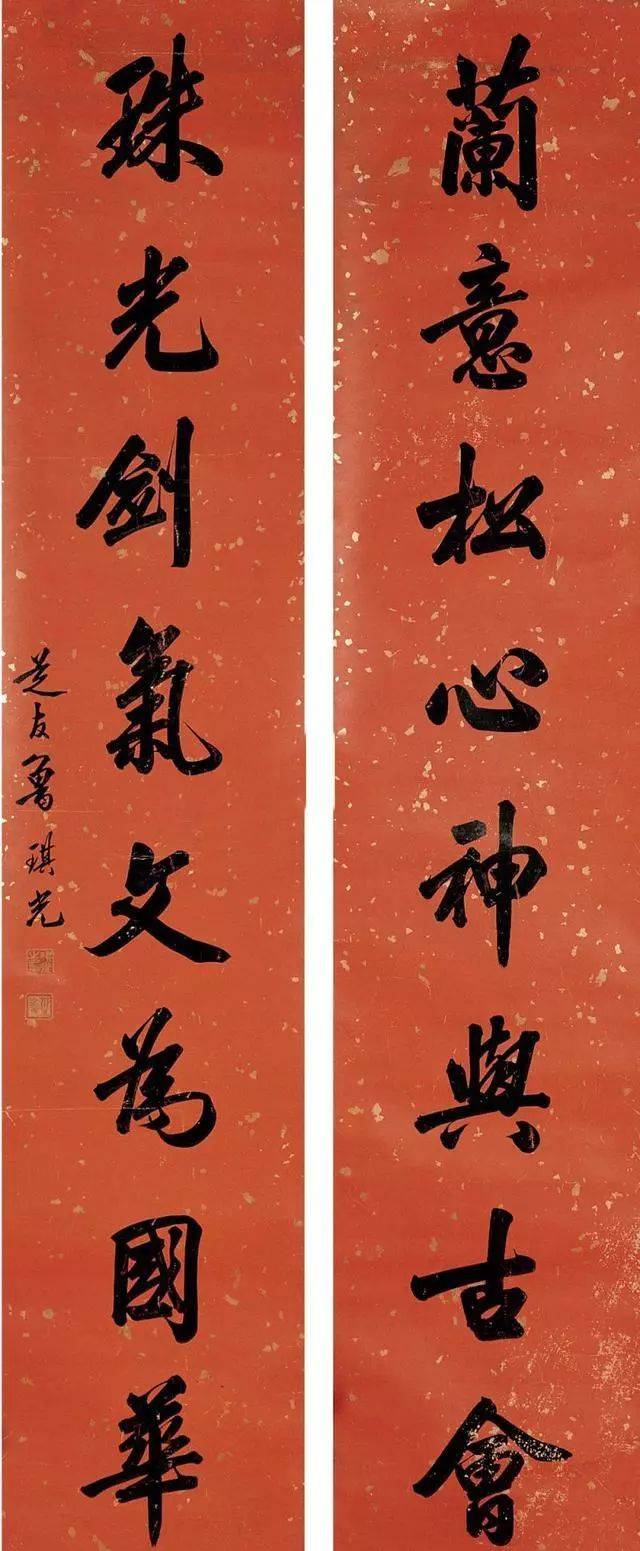 蘭意松心神與古會
珠光劍氣文為國華
芝友魯琪光